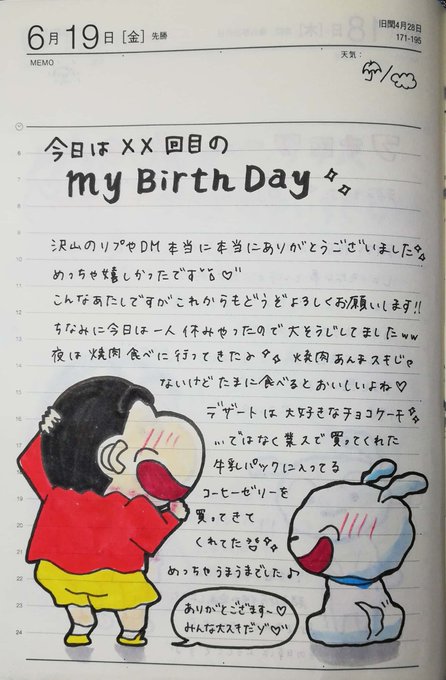 6月19日[金] 先勝
旧閏4月28日
171-195
MEMO
天気:
今日は××回目の
my Birth Day
沢山のリプやDM本当に本当にありがとうございました
めっちゃ嬉しかったです♡
こんなあたしですがこれからもどうぞよろしくお願いします!!
ちなみに今日は一人休みやったので大そうじしてましたww
夜は焼肉食べに行ってきたよ 焼肉あんまスキじゃ
ないけどたまに食べるとおいしいよね♡
デザートは大好きなチョコケーキ
…ではなく業スで買ってくれた
牛乳パックに入ってる
コーヒーゼリーを
買ってきて
くれてた
めっちゃうまうまでした♪
ありがとござます~♡
みんな大スキだゾ♡
6
7
8
9
10
11
12
13
14
15
16
17
18
19
20
21
22
23
24